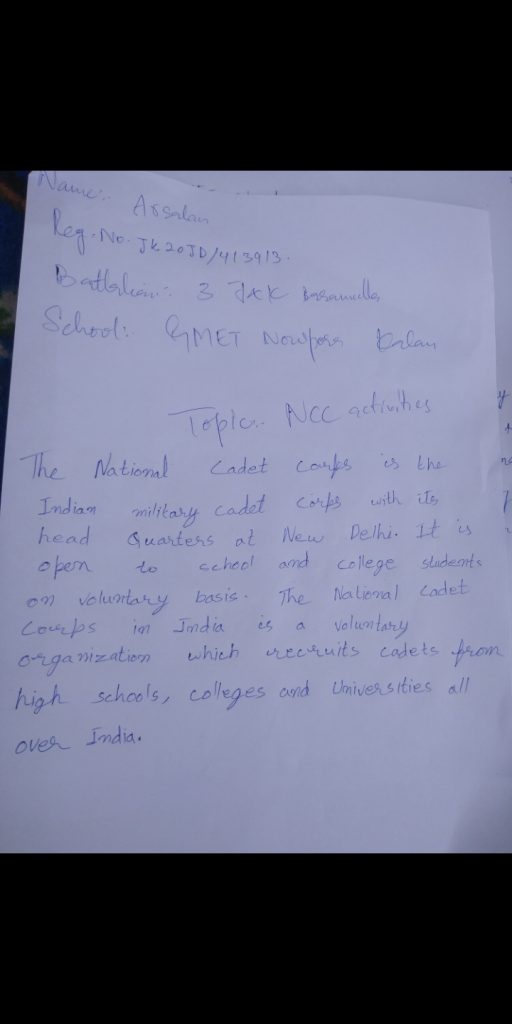 Name:. Arsalan
Reg. No. JK20JD/413913.
Battalian:. 3 J&K Baramulla
School:. GMET Nowpora Kalan
Topic:. NCC activities
The National Cadet Courps is the
Indian military cadet Corps with its
head Quarters at New Delhi. It is
open to school and college students
on voluntary basis. The National Cadet
Courps in India is a voluntary
organization which recruits cadets from
high schools, colleges and Universities all
over India.